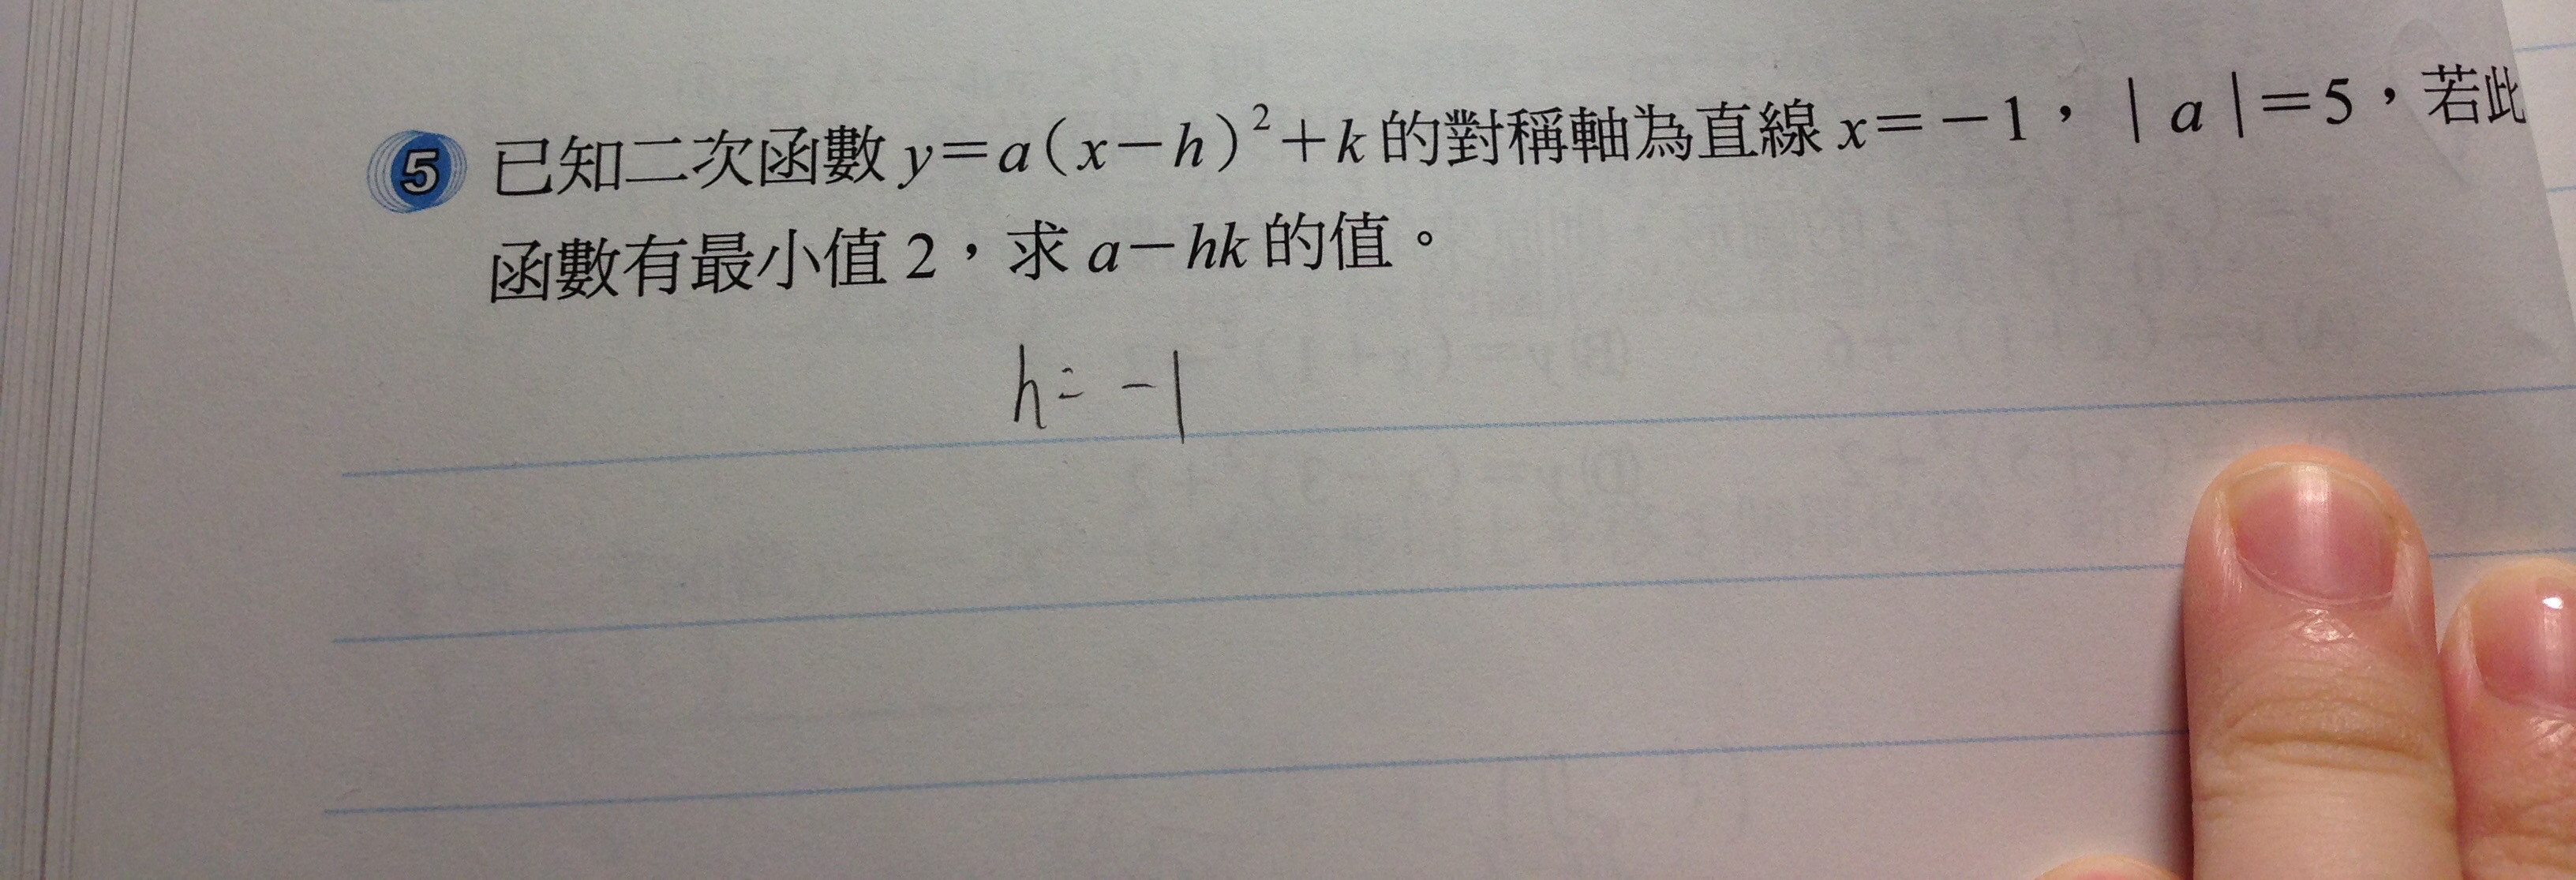 5 已知二次函數 y=a(x-h)²+k 的對稱軸為直線 x=-1,|a|=5,若此
函數有最小值 2,求 a-hk 的值。
h=-1